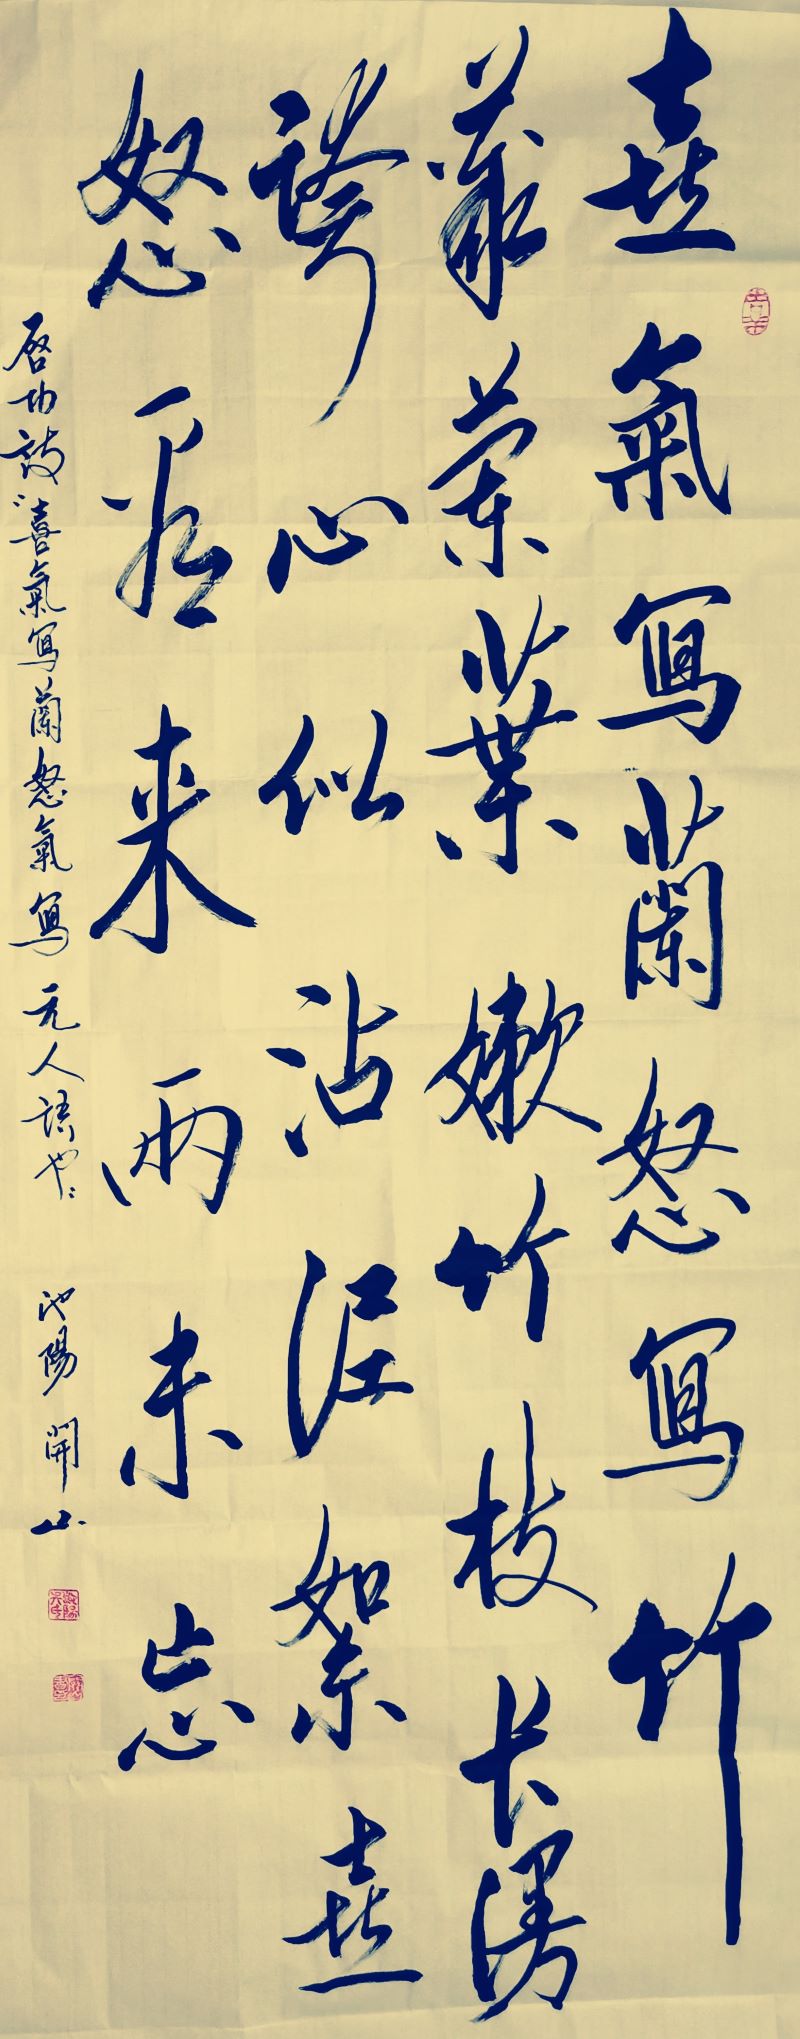 喜氣寫蘭怒寫竹
叢蘭葉嫩竹枝長漫
誇心似沾泥絮喜
怒看來兩未忘
啓功詩喜氣寫蘭怒氣寫元人語也
池陽開山